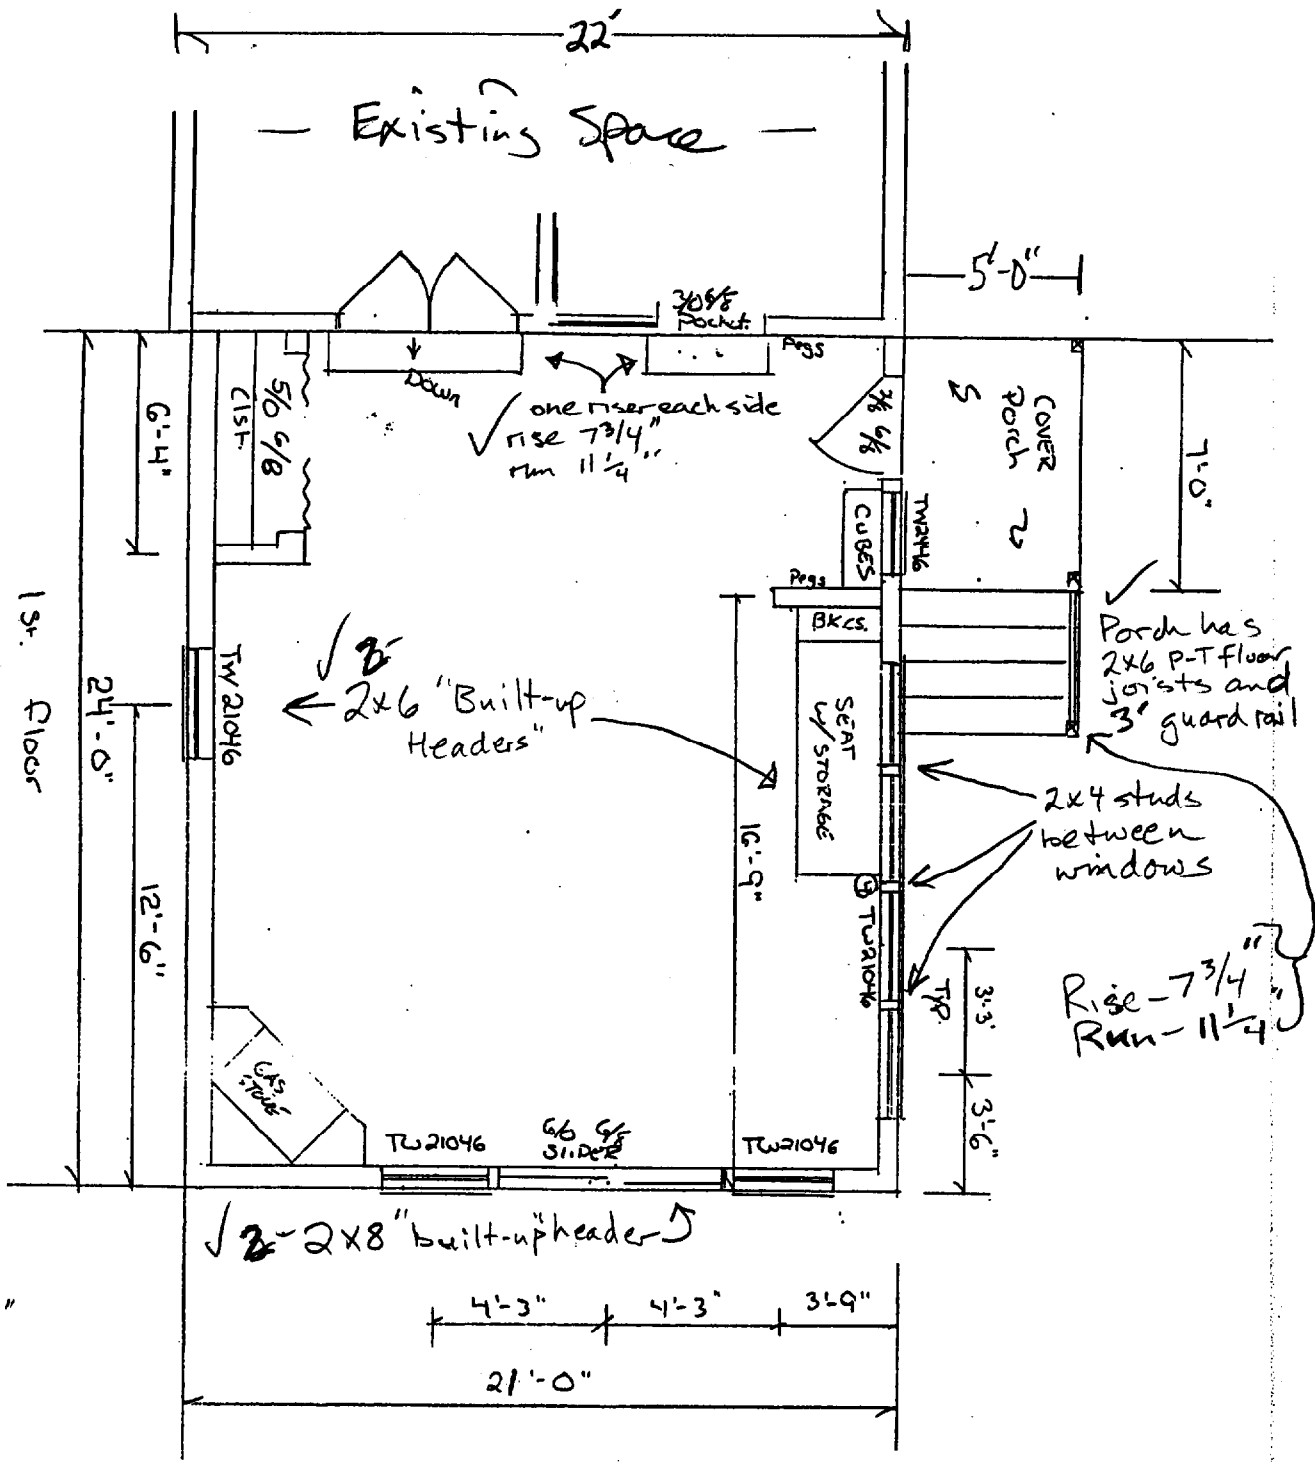 22'
— Existing Space —
5'-0"
3/0 6/8
Pocket.
Pegs
Down
one riser each side
rise 7 3/4"
run 11 1/4"
5/0 6/8
Clst.
6'-4"
2/8 6/8
COVER
Porch
7'-0"
TW2446
CUBES
Pegs
BKCS.
Porch has
2x6 P-T floor
joists and
3' guard rail
1st. Floor
24'-0"
TW 21046
2-
2x6 "Built-up
Headers"
SEAT
w/ STORAGE
16'-9"
2x4 studs
between
windows
12'-6"
4 TW21046
Typ.
3'-3"
Rise - 7 3/4"
Run - 11 1/4"
GAS
STOVE
3'-6"
TW21046
6/0 6/8
SLIDER
TW21046
2- 2x8 "built-up" header
4'-3"
4'-3"
3'-9"
21'-0"